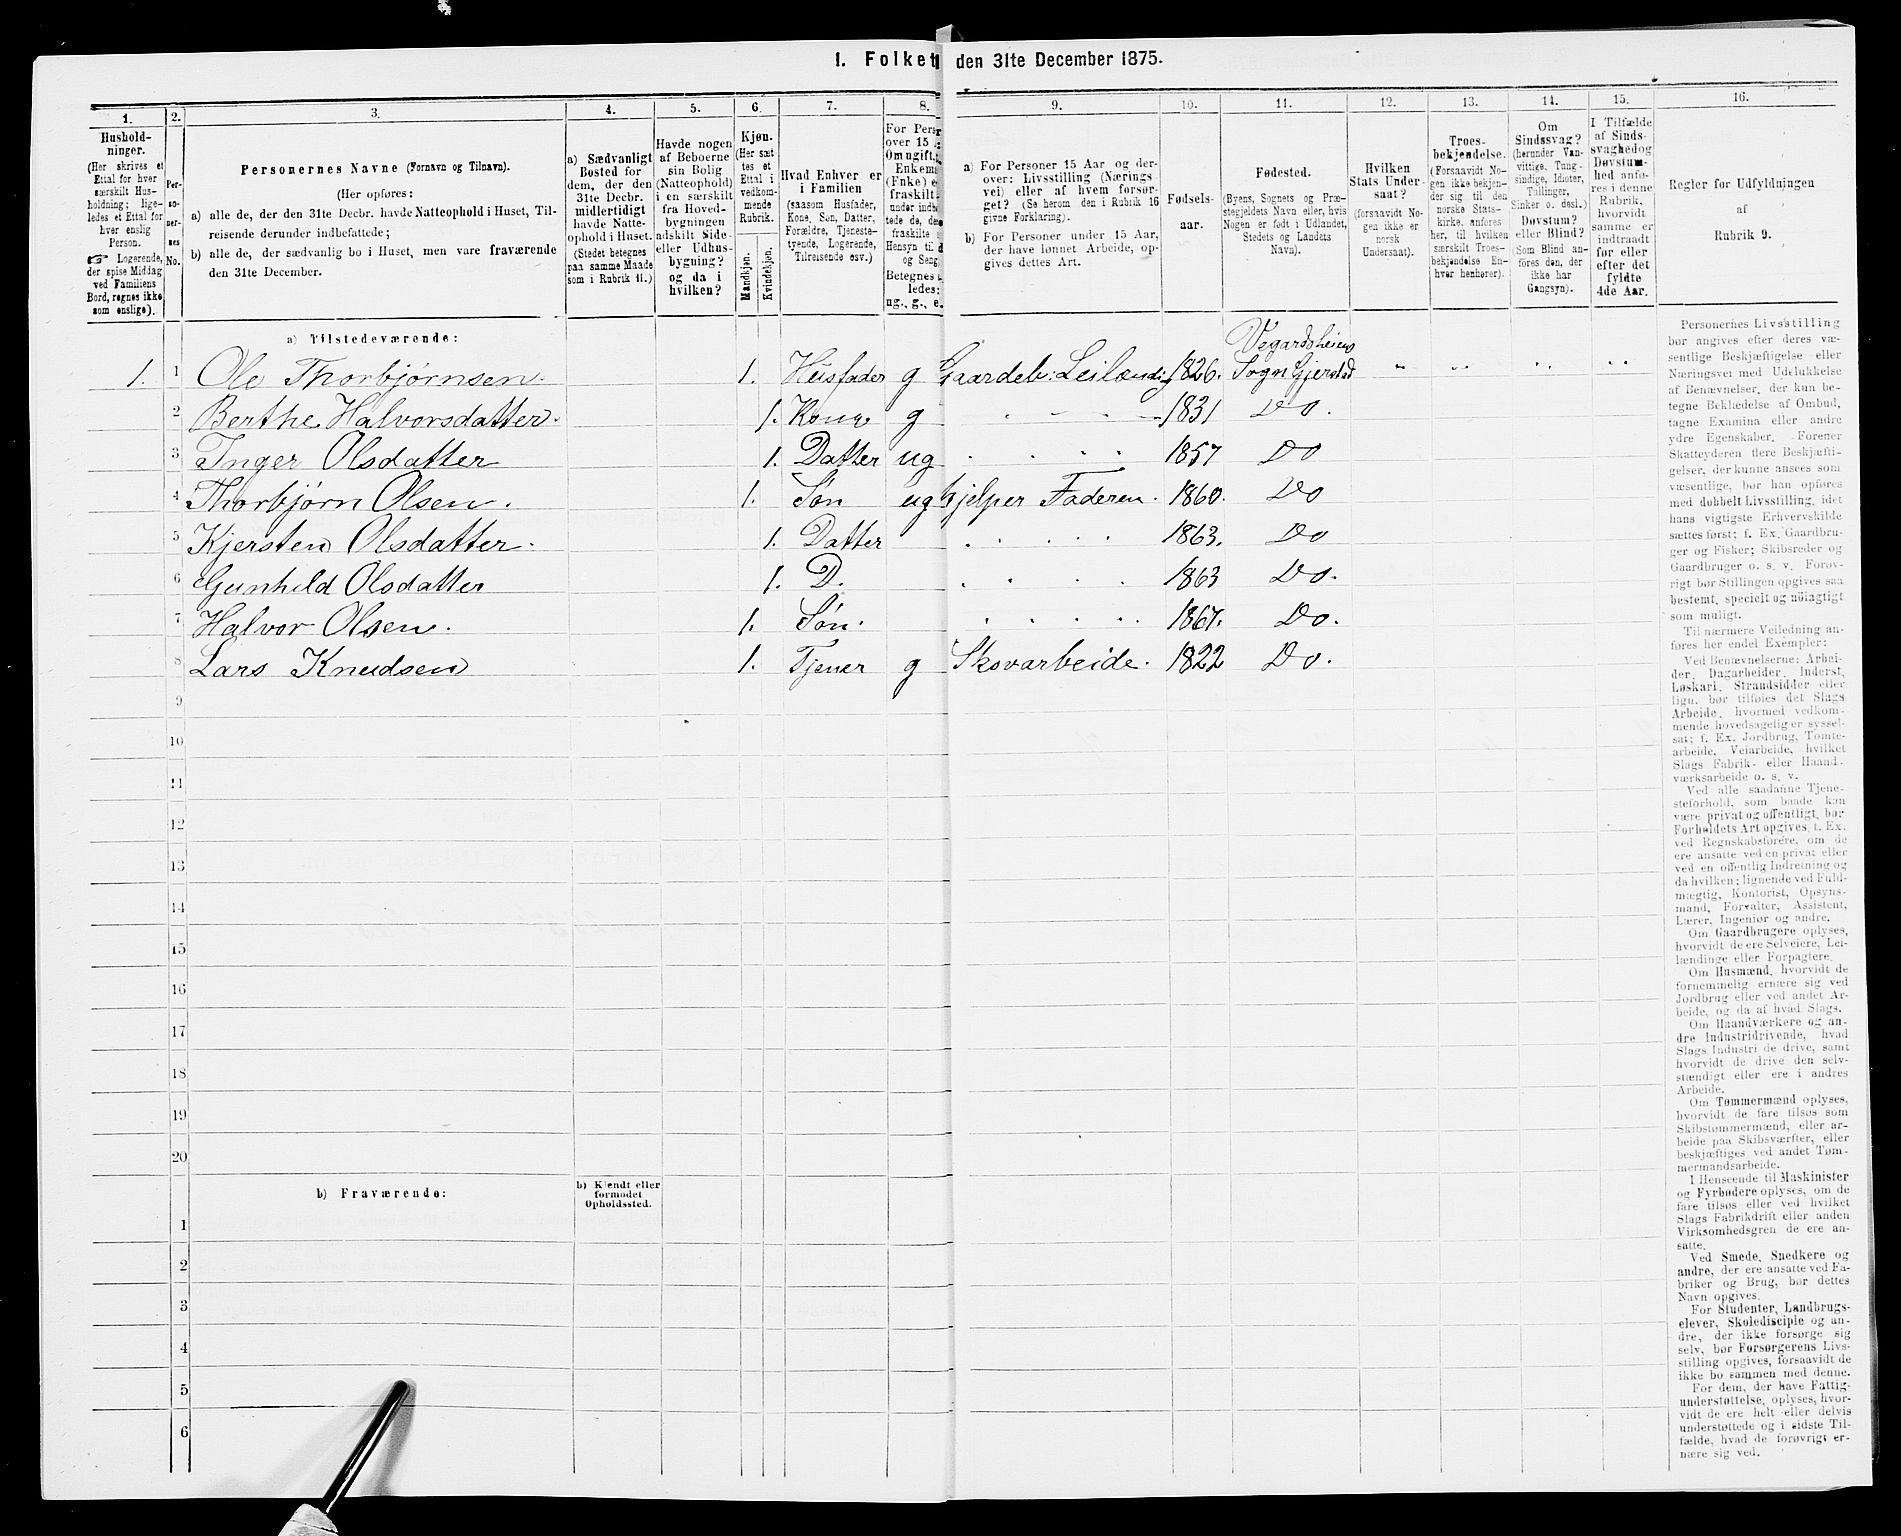 1. Folket den 31te December 1875.
1. 2. 3. 4. 5. 6. 7. 8. 9. 10. 11. 12. 13. 14. 15. 16.
Hushold-
ninger.
(Her skrives et
Ettal for hver
særskilt Hus-
holdning; lige-
ledes et Ettal for
hver enslig
Person.
Logerende,
der spise Middag
ved Familiens
Bord, regnes ikke
som enslige).
Per-
so-
ner-
nes
No.
Personernes Navne (Fornavn og Tilnavn).
(Her opføres:
a) alle de, der den 31te Decbr. havde Natteophold i Huset, Til-
reisende derunder indbefattede;
b) alle de, der sædvanlig bo i Huset, men vare fraværende
den 31te December.
a) Sædvanligt
Bosted for
dem, der den
31te Decbr.
midlertidigt
havde Natte-
ophold i Huset.
(Stedet betegnes
paa samme Maade
som i Rubrik 11.)
Havde nogen
af Beboerne
sin Bolig
(Natteophold)
i en særskilt
fra Hoved-
bygningen
adskilt Side-
eller Udhus-
bygning?
og da i
hvilken?
Kjøn.
(Her sæt
tes et
Ettal i
vedkom-
mende
Rubrik.
Mandkjøn.
Kvindekjøn.
Hvad Enhver er
i Familien
(saasom Husfader,
Kone, Søn, Datter,
Forældre, Tjeneste-
tyende, Logerende,
Tilreisende osv.)
For Pers
over 15
Om ugift,
Enkem
(Enke) e
fraskilt
under indb
tede de,
fraskilte
Hensyn til
og Seng
Betegnes
ledes:
ug., g., e.
a) For Personer 15 Aar og der-
over: Livsstilling (Nærings
vei) eller af hvem forsør-
get? (Se herom den i Rubrik 16
givne Forklaring).
b) For Personer under 15 Aar,
der have lønnet Arbeide, op-
gives dettes Art.
Fødsels-
aar.
Fødested.
(Byens, Sognets og Præ-
stegjeldets Navn eller, hvis
Nogen er født i Udlandet,
Stedets og Landets
Navn).
Hvilken
Stats Under-
saat?
(forsaavidt No-
gen ikke er
norsk
Undersaat).
Troes-
bekjendelse.
(Forsaavidt No-
gen ikke bekjen-
der sig til den
norske Stats-
kirke, anføres
her, til hvilken
særskilt Troes-
bekjendelse En-
hver henhører).
Om
Sindssvag?
(herunder Van-
vittige, Tung-
sindige, Idioter,
Tullinger,
Sinker o. desl.)
Døvstum?
eller Blind?
(Som Blind an-
føres den, der
ikke har
Gangsyn).
I Tilfælde
af Sinds-
svaghed og
Døvstum-
hed anfø-
res i denne
Rubrik,
hvorvidt
samme er
indtraadt
før eller
efter det
fyldte
4de Aar.
Regler for Udfyldningen
af
Rubrik 9.
a) Tilstedeværende:
Vegardsheiens
1. 1 Ole Thorbjørnsen. 1. Husfader g Gaardeb: Leilænding 1826. Sogn Gjerstad " " " "
2 Berthe Halvorsdatter. 1. Kone g 1831 Do.
3 Inger Olsdatter 1. Datter ug 1857 Do
4 Thorbjørn Olsen. 1. Søn ug hjelper Faderen. 1860. Do
5 Kjersten Olsdatter. 1. Datter 1863. Do
6 Gunhild Olsdatter 1. D. 1863 Do.
7 Halvor Olsen. 1. Søn. 1867. Do.
8 Lars Knudsen 1. Tjener g Skovarbeide. 1822 Do.
9
10
11
12
13
14
15
16
17
18
19
20
b) Fraværende:
b) Kjendt eller
formodet
Opholdssted.
1
2
3
4
5
6
Personernes Livsstilling
bør angives efter deres væ-
sentlige Beskjæftigelse eller
Næringsvei med Udelukkelse
af Benævnelser, der kun be-
tegne Beklædelse af Ombud,
tagne Examina eller andre
ydre Egenskaber. Forener
Skatteyderen flere Beskjæfti-
gelser, der kunne ansees som
væsentlige, bør han opføres
med dobbelt Livsstilling, idet
hans vigtigste Erhvervskilde
sættes først; f. Ex. Gaardbru-
ger og Fisker; Skibsreder og
Gaardbruger o. s. v. Forøv-
rigt bør Stillingen opgives saa
bestemt, specielt og nøiagtigt
som muligt.
Til nærmere Veiledning an-
føres her endel Exempler:
Ved Benævnelserne: Arbei-
der, Dagarbeider, Inderst,
Løskarl, Strandsidder eller
lign. bør tilføies det Slags
Arbeide, hvormed vedkom-
mende hovedsagelig er syssel-
sat; f. Ex. Jordbrug, Tomte-
arbeide, Veiarbeide, hvilket
Slags Fabrik- eller Haand-
værksarbeide o. s. v.
Ved alle saadanne Tjene-
steforhold, som baade kan
være privat og offentligt, bør
Forholdets Art opgives, f. Ex.
ved Regnskabsførere, om de
ere ansatte ved en privat eller
ved en offentlig Indretning og
da hvilken; lignende ved Fuld-
mægtig, Kontorist, Opsyns-
mand, Forvalter, Assistent,
Lærer, Ingeniør og andre.
Om Gaardbrugere oplyses,
hvorvidt de ere Selveiere, Lei-
lændinge eller Forpagtere.
Om Husmænd, hvorvidt de
fornemmelig ernære sig ved
Jordbrug eller ved andet Ar-
beide, og da af hvad Slags.
Om Haandværkere og an-
dre Industridrivende, hvad
Slags Industri de drive, samt
hvorvidt de drive den selv-
stændigt eller ere i andres
Arbeide.
Om Tømmermænd oplyses,
hvorvidt de fare tilsøs som
Skibstømmermænd, eller ar-
beide paa Skibsværfter, eller
beskjæftiges ved andet Tøm-
mermandsarbeide.
I Henseende til Maskinister
og Fyrbødere oplyses, om de
fare tilsøs eller ved hvilket
Slags Fabrikdrift eller anden
Virksomhedsgren de ere an-
satte.
Ved Smede, Snedkere og
andre, der ere ansatte ved Fa-
briker og Brug, bør dettes
Navn opgives.
For Studenter, Landbrugs-
elever, Skoledisciple og an-
dre, der ikke forsørge sig
selv, bør Forsørgerens Livs-
stilling opgives, forsaavidt de
ikke bo sammen med denne.
For dem, der have Fattig-
understøttelse, oplyses, hvor-
vidt de ere helt eller delvis
understøttede og i sidste Til-
fælde, hvad de forøvrigt er-
nære sig ved.